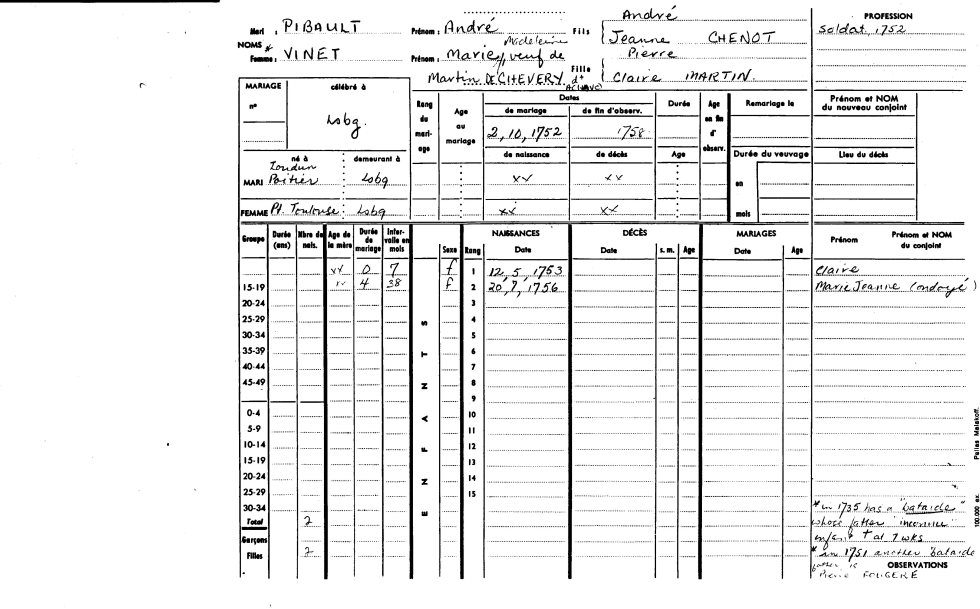 André
PROFESSION
Mari : PIBAULT Prénom : André Fils Jeanne CHENOT Soldat, 1752
NOMS *
Madeleine Pierre
Femme : VINET Prénom : Marie, veuf de Fille
Martin DECHEVERY d+ Claire MARTIN.
MARIAGE célébré à
n°
Lsbg.
Rang du mariage
Age au mariage
Dates
de mariage de fin d'observ.
2, 10, 1752 1758
Durée
Age en fin d'observ.
Remariage le
Prénom et NOM du nouveau conjoint
de naissance de décès Age Durée du veuvage Lieu du décès
né à demeurant à
Loudun
MARI Poitier Lsbg xx xx en
FEMME Pt. Toulouse Lsbg xx xx mois
Groupe Durée (ans) Nbre de nais. Age de la mère Durée de mariage Intervalle en mois
ENFANTS
Sexe Rang
NAISSANCES Date
DÉCÈS Date s. m. Age
MARIAGES Date Age
Prénom Prénom et NOM du conjoint
xx 0 7 f 1 12, 5, 1753 Claire
15-19 4 38 f 2 20, 7, 1756 Marie Jeanne (ondoyé)
20-24 3
25-29 4
30-34 5
35-39 6
40-44 7
45-49 8
9
0-4 10
5-9 11
10-14 12
15-19 13
20-24 14
25-29 15
30-34
Total 2
Garçons
Filles 2
* in 1735 has a "batarde"
whose father "inconnu"
enfant † at 7 wks
* in 1751 another batarde
father is OBSERVATIONS
Pierre FOUGERE
100.000 ex. Pallas Malakoff.